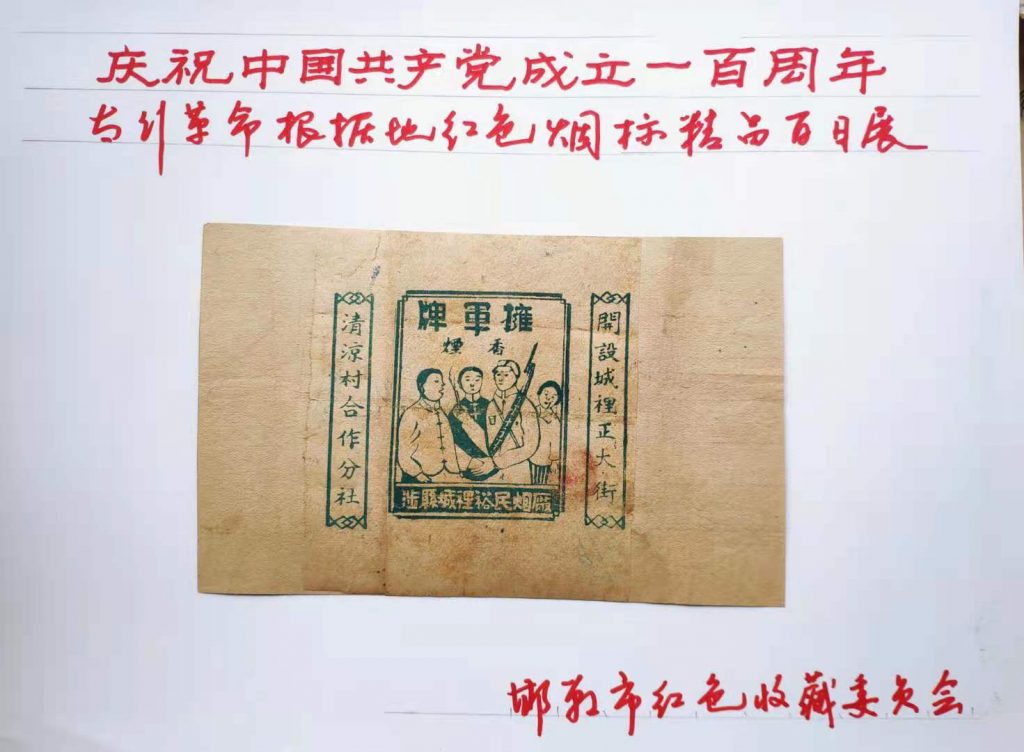 庆祝中国共产党成立一百周年
太行革命根据地红色烟标精品百日展
擁軍牌
香煙
開設城裡正大街
清涼村合作分社
涉縣城裡裕民烟廠
邯郸市红色收藏委员会